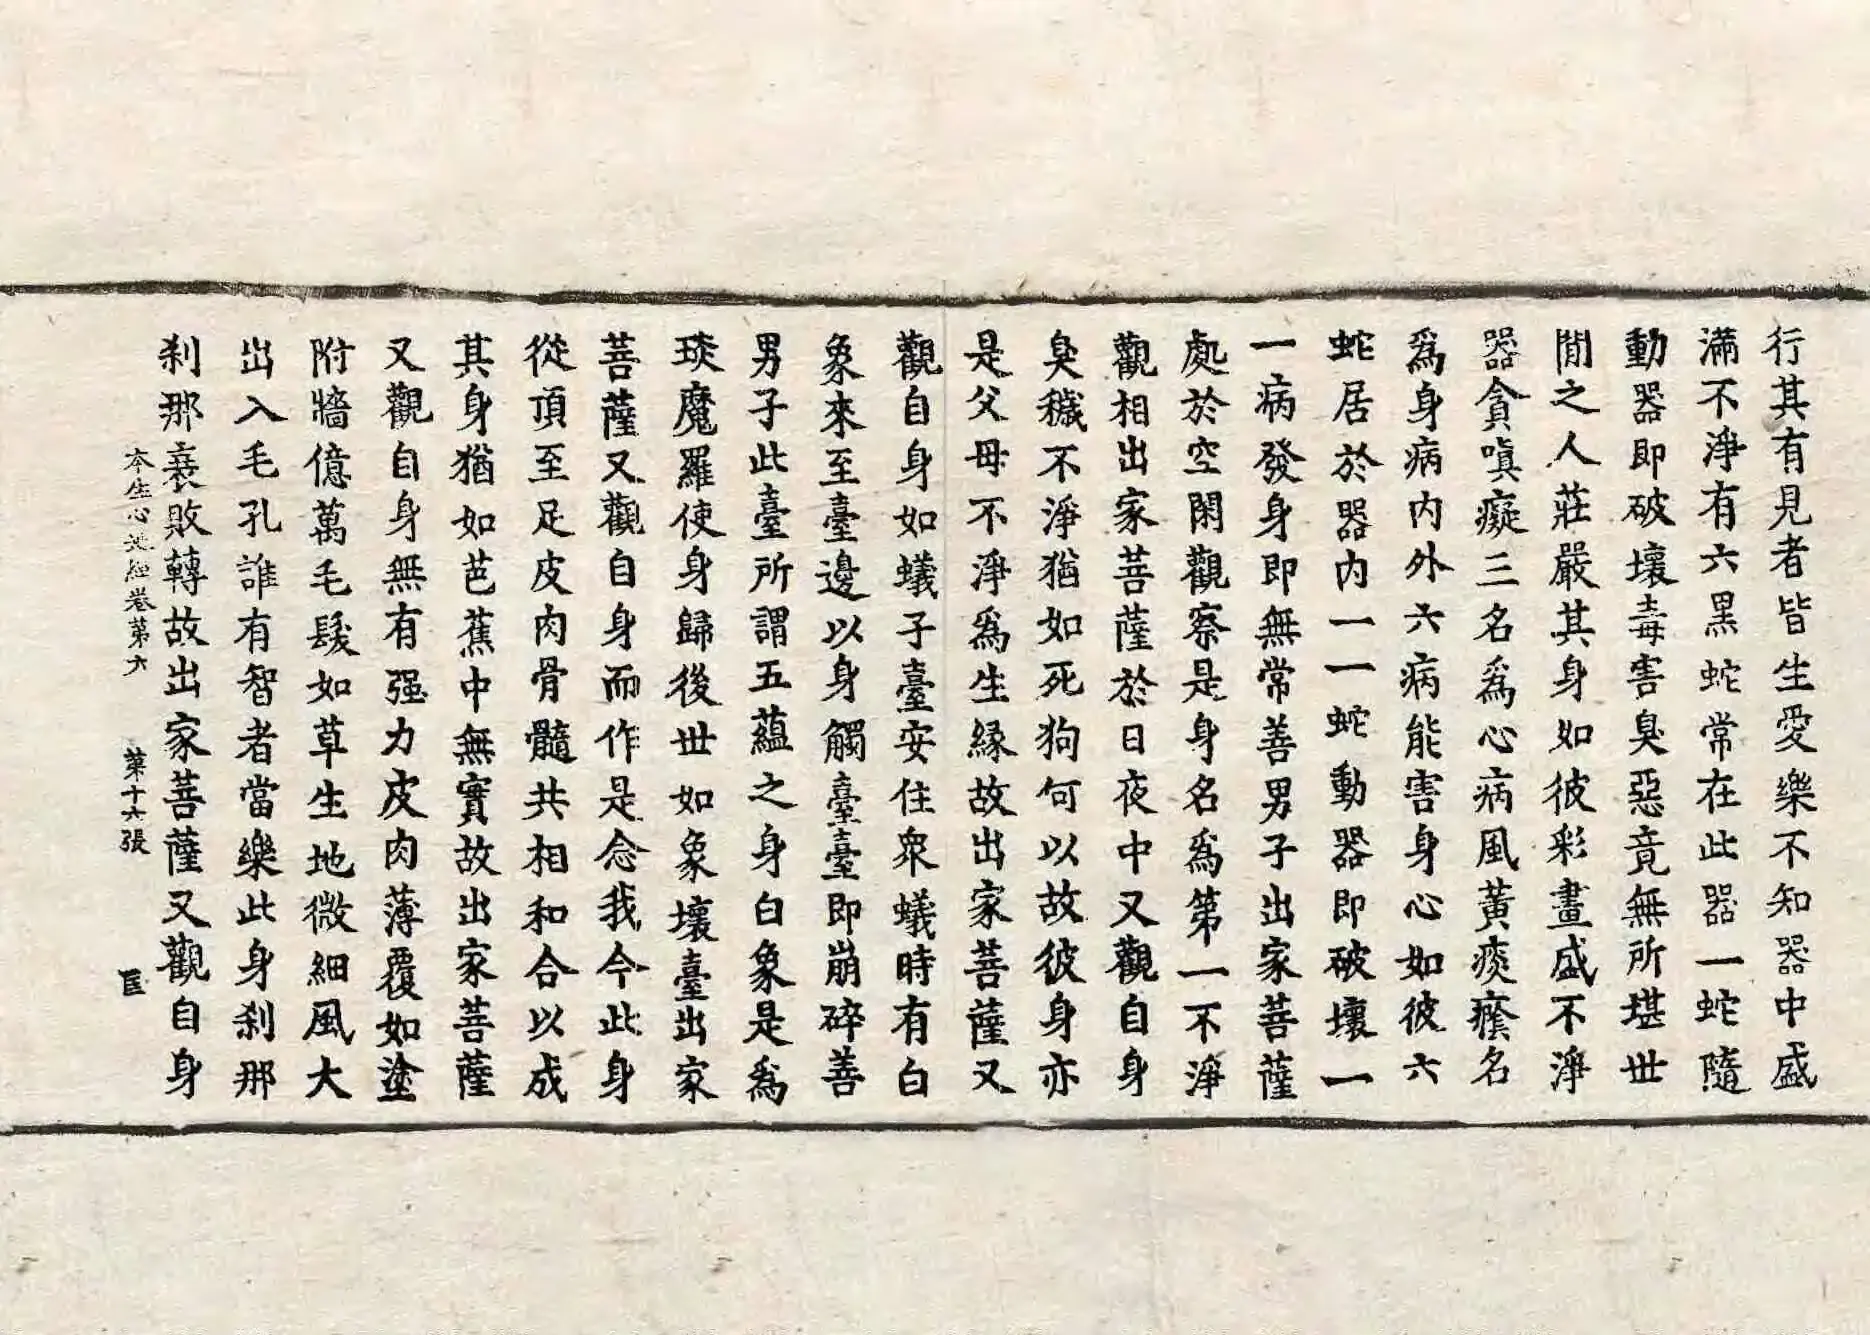 行其有見者皆生愛樂不知器中盛
滿不淨有六黑蛇常在此器一蛇隨
動器即破壞毒害臭惡竟無所堪世
閒之人莊嚴其身如彼彩畫盛不淨
器貪嗔癡三名爲心病風黃痰癊名
爲身病內外六病能害身心如彼六
蛇居於器內一一蛇動器即破壞一
一病發身即無常善男子出家菩薩
處於空閑觀察是身名爲第一不淨
觀相出家菩薩於日夜中又觀自身
臭穢不淨猶如死狗何以故彼身亦
是父母不淨爲生緣故出家菩薩又
觀自身如蟻子臺安住衆蟻時有白
象來至臺邊以身觸臺臺即崩碎善
男子此臺所謂五蘊之身白象是爲
琰魔羅使身歸後世如象壞臺出家
菩薩又觀自身而作是念我今此身
從頂至足皮肉骨髓共相和合以成
其身猶如芭蕉中無實故出家菩薩
又觀自身無有强力皮肉薄覆如塗
附牆億萬毛髮如草生地微細風大
出入毛孔誰有智者當樂此身刹那
刹那衰敗轉故出家菩薩又觀自身
本生心地經卷第六 第十六張 匡